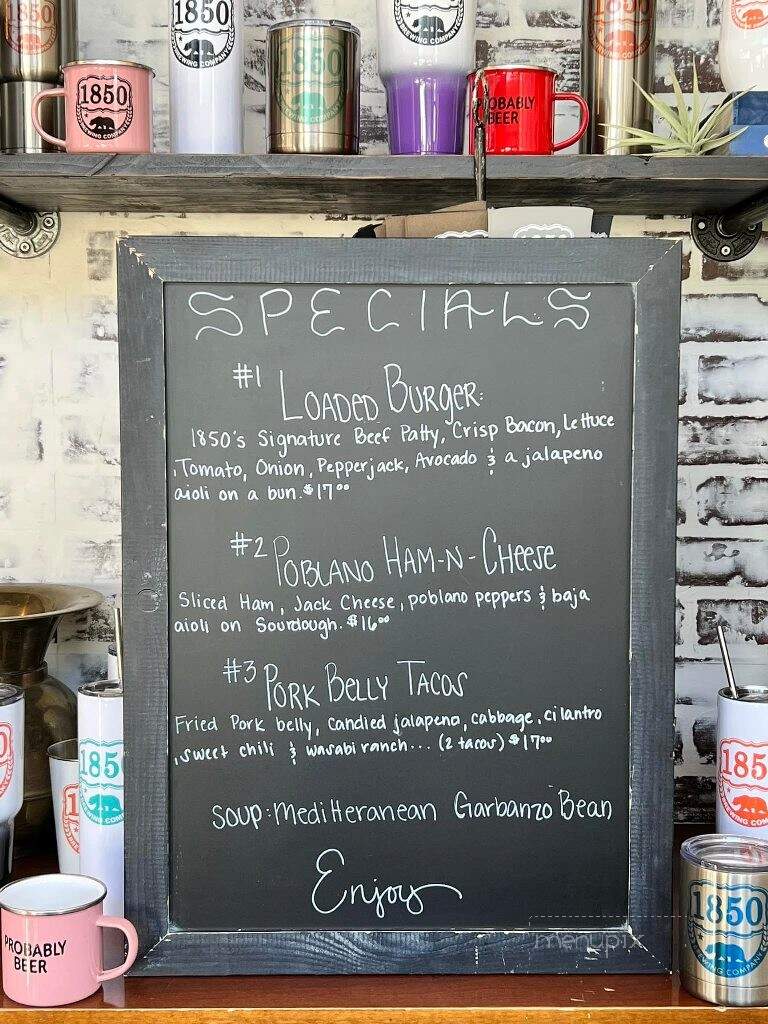 1850
1850
BREWING COMPANY
1850
BREWING COMPANY
1850
BREWING COMPANY
BREWING COMPANY
PROBABLY
BEER
SPECIALS
#1 LOADED BURGER:
1850's Signature Beef Patty, Crisp Bacon, Lettuce
, Tomato, Onion, Pepperjack, Avocado & a jalapeno
aioli on a bun. $17⁰⁰
#2 POBLANO HAM-N-CHEESE
Sliced Ham, Jack Cheese, poblano peppers & baja
aioli on Sourdough. $16⁰⁰
#3 PORK BELLY TACOS
Fried Pork belly, candied jalapeno, cabbage, cilantro
, sweet chili & wasabi ranch... (2 tacos) $17⁰⁰
soup: mediteranean Garbanzo Bean
Enjoy
menupix
185
185
1850
BREWING COMPANY
PROBABLY
BEER